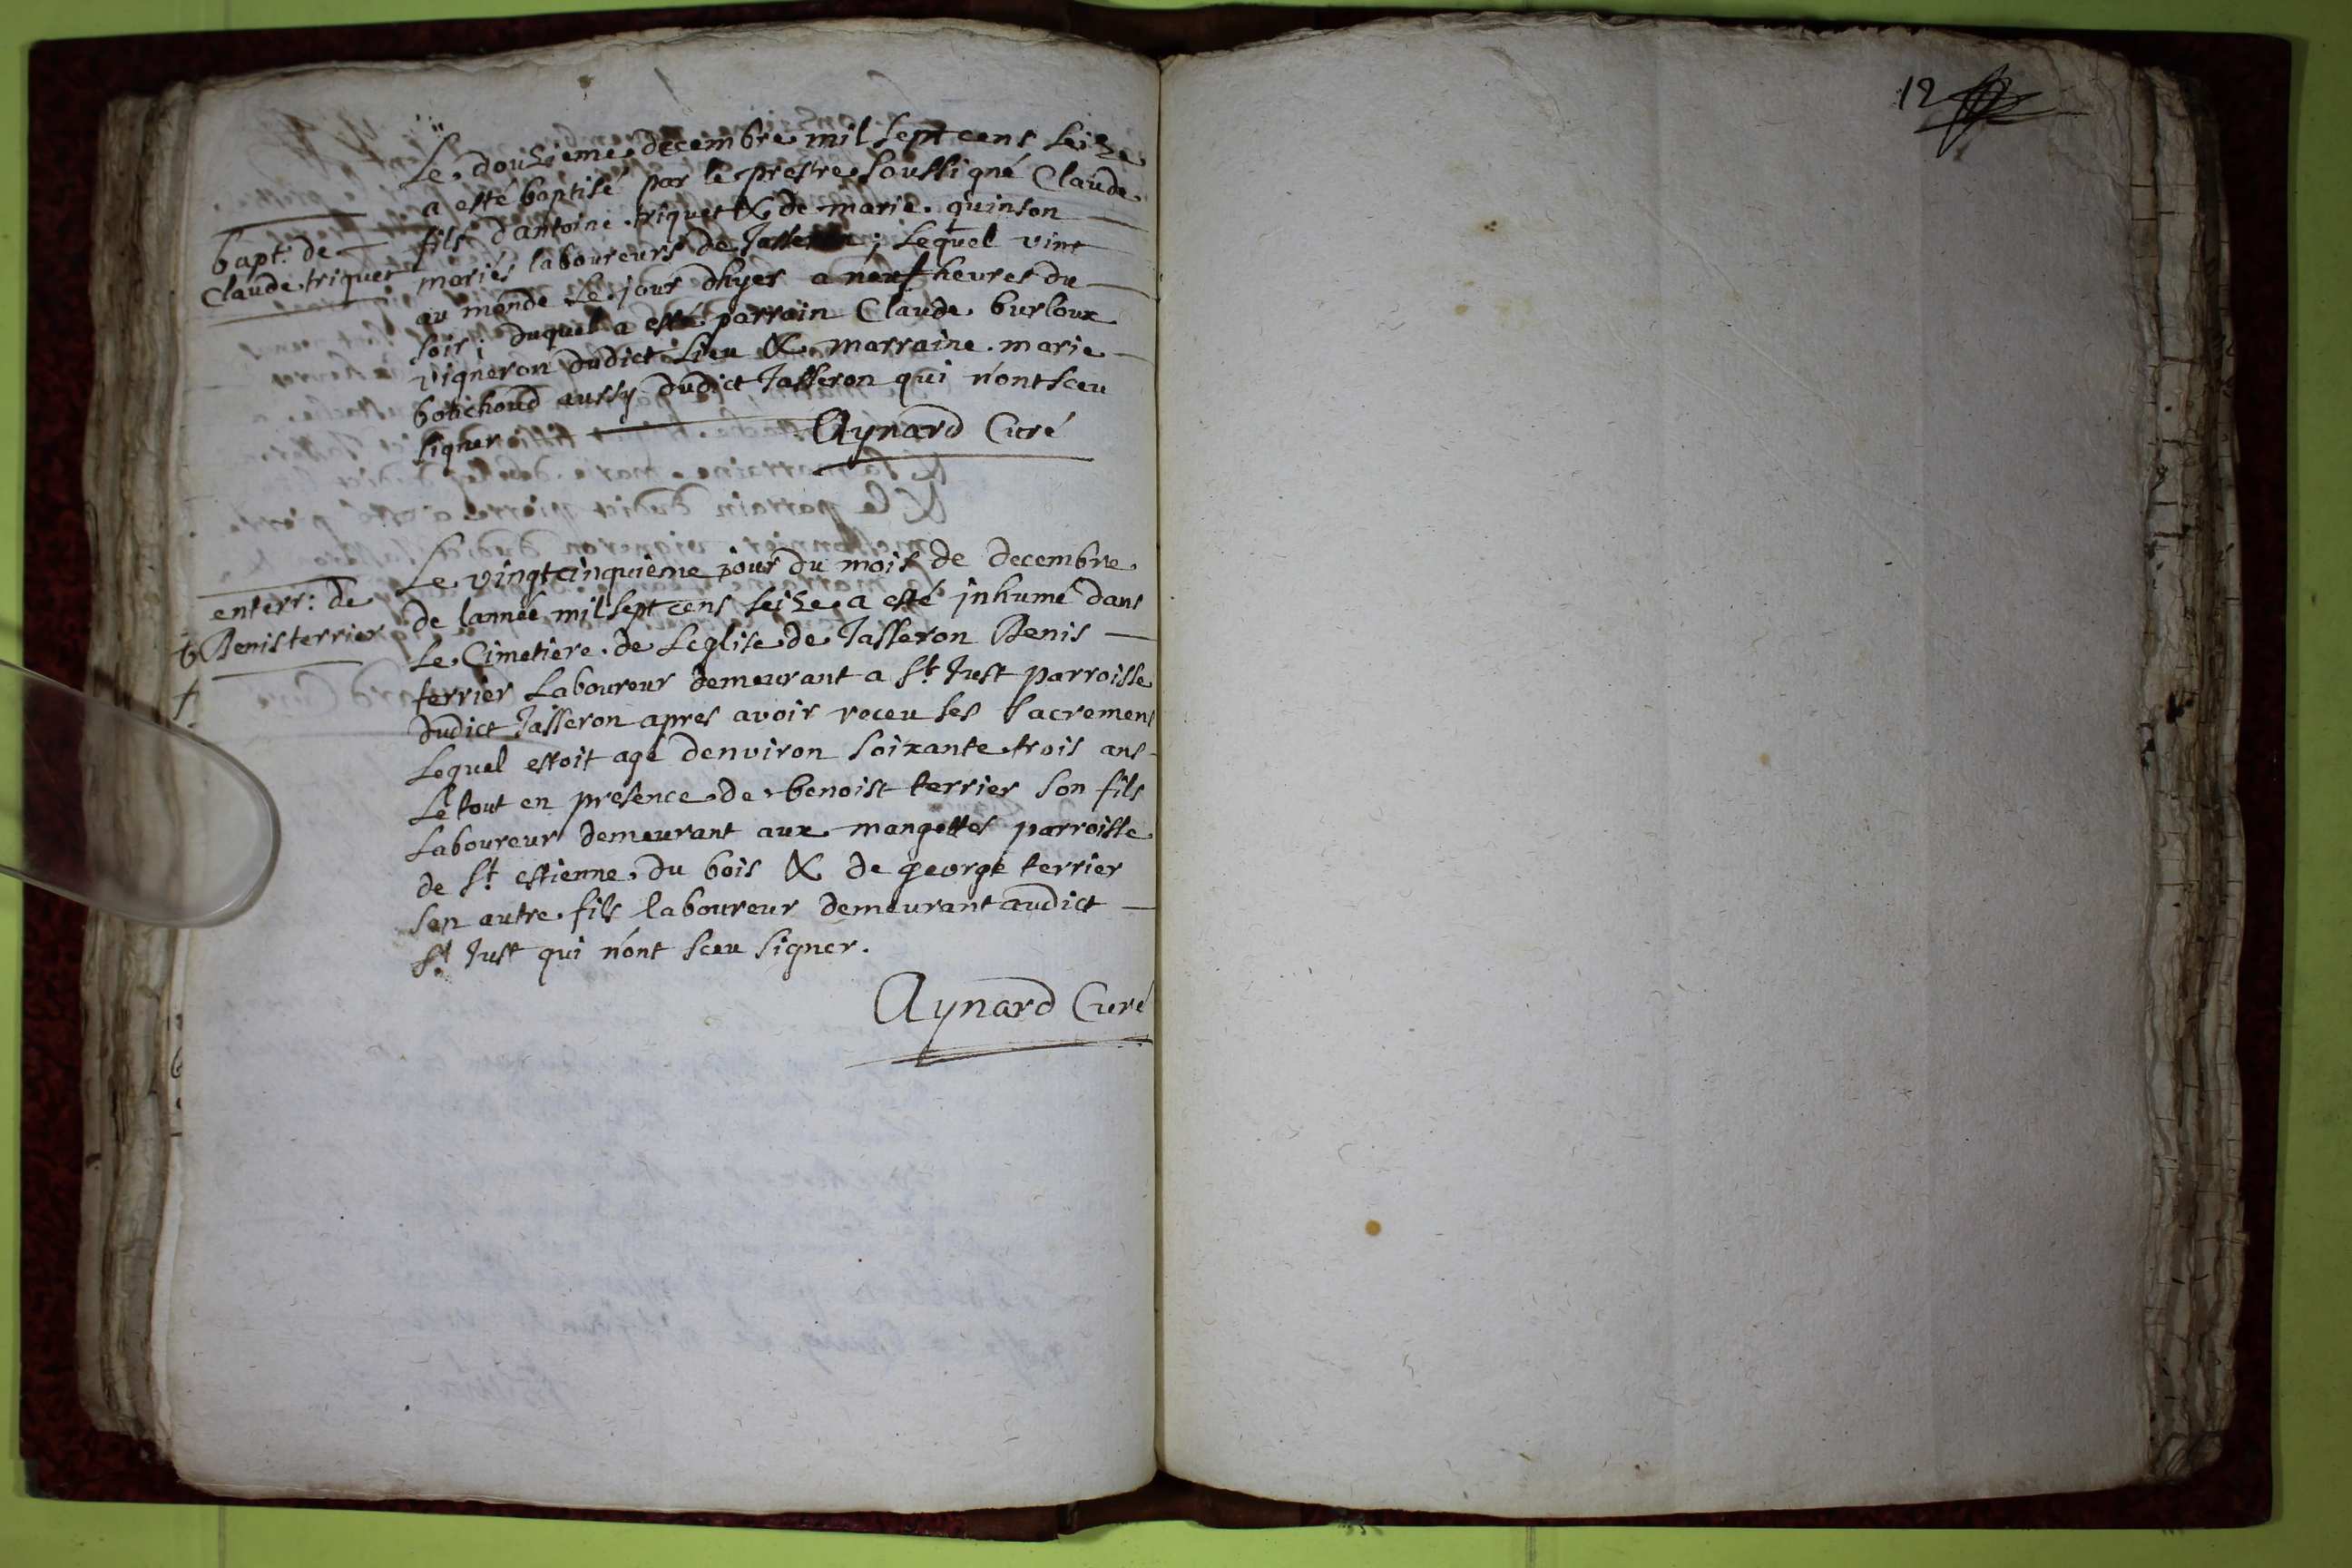 12
bapt: de
Claude triquet
Le douzieme decembre mil sept cens seize
a esté baptisé par le prestre soussigné Claude
fils d'antoine triquet & de marie quinson
mariés laboureurs de Jasseron; Lequel vint
au monde Le jour dhyer a neuf heures du
soir; duquel a esté parrain Claude burloux
vigneron dudict Lieu & marraine marie
bouchoud aussy dudict Jasseron qui n'ont sceu
signer
Aynard Curé
enterr: de
Denis terrier
Le vingtcinquieme jour du mois de decembre
de lannée mil sept cens seize a esté inhumé dans
Le Cimetiere de Leglise de Jasseron Denis
terrier Laboureur demeurant a St Just parroisse
dudict Jasseron apres avoir receu ses sacremens
Lequel estoit agé denviron soixante trois ans
Le tout en presence de benoist terrier son fils
Laboureur demeurant aux mangettes parroisse
de St estienne du bois & de george terrier
son autre fils laboureur demeurant audict
St Just qui n'ont sceu signer.
Aynard Curé